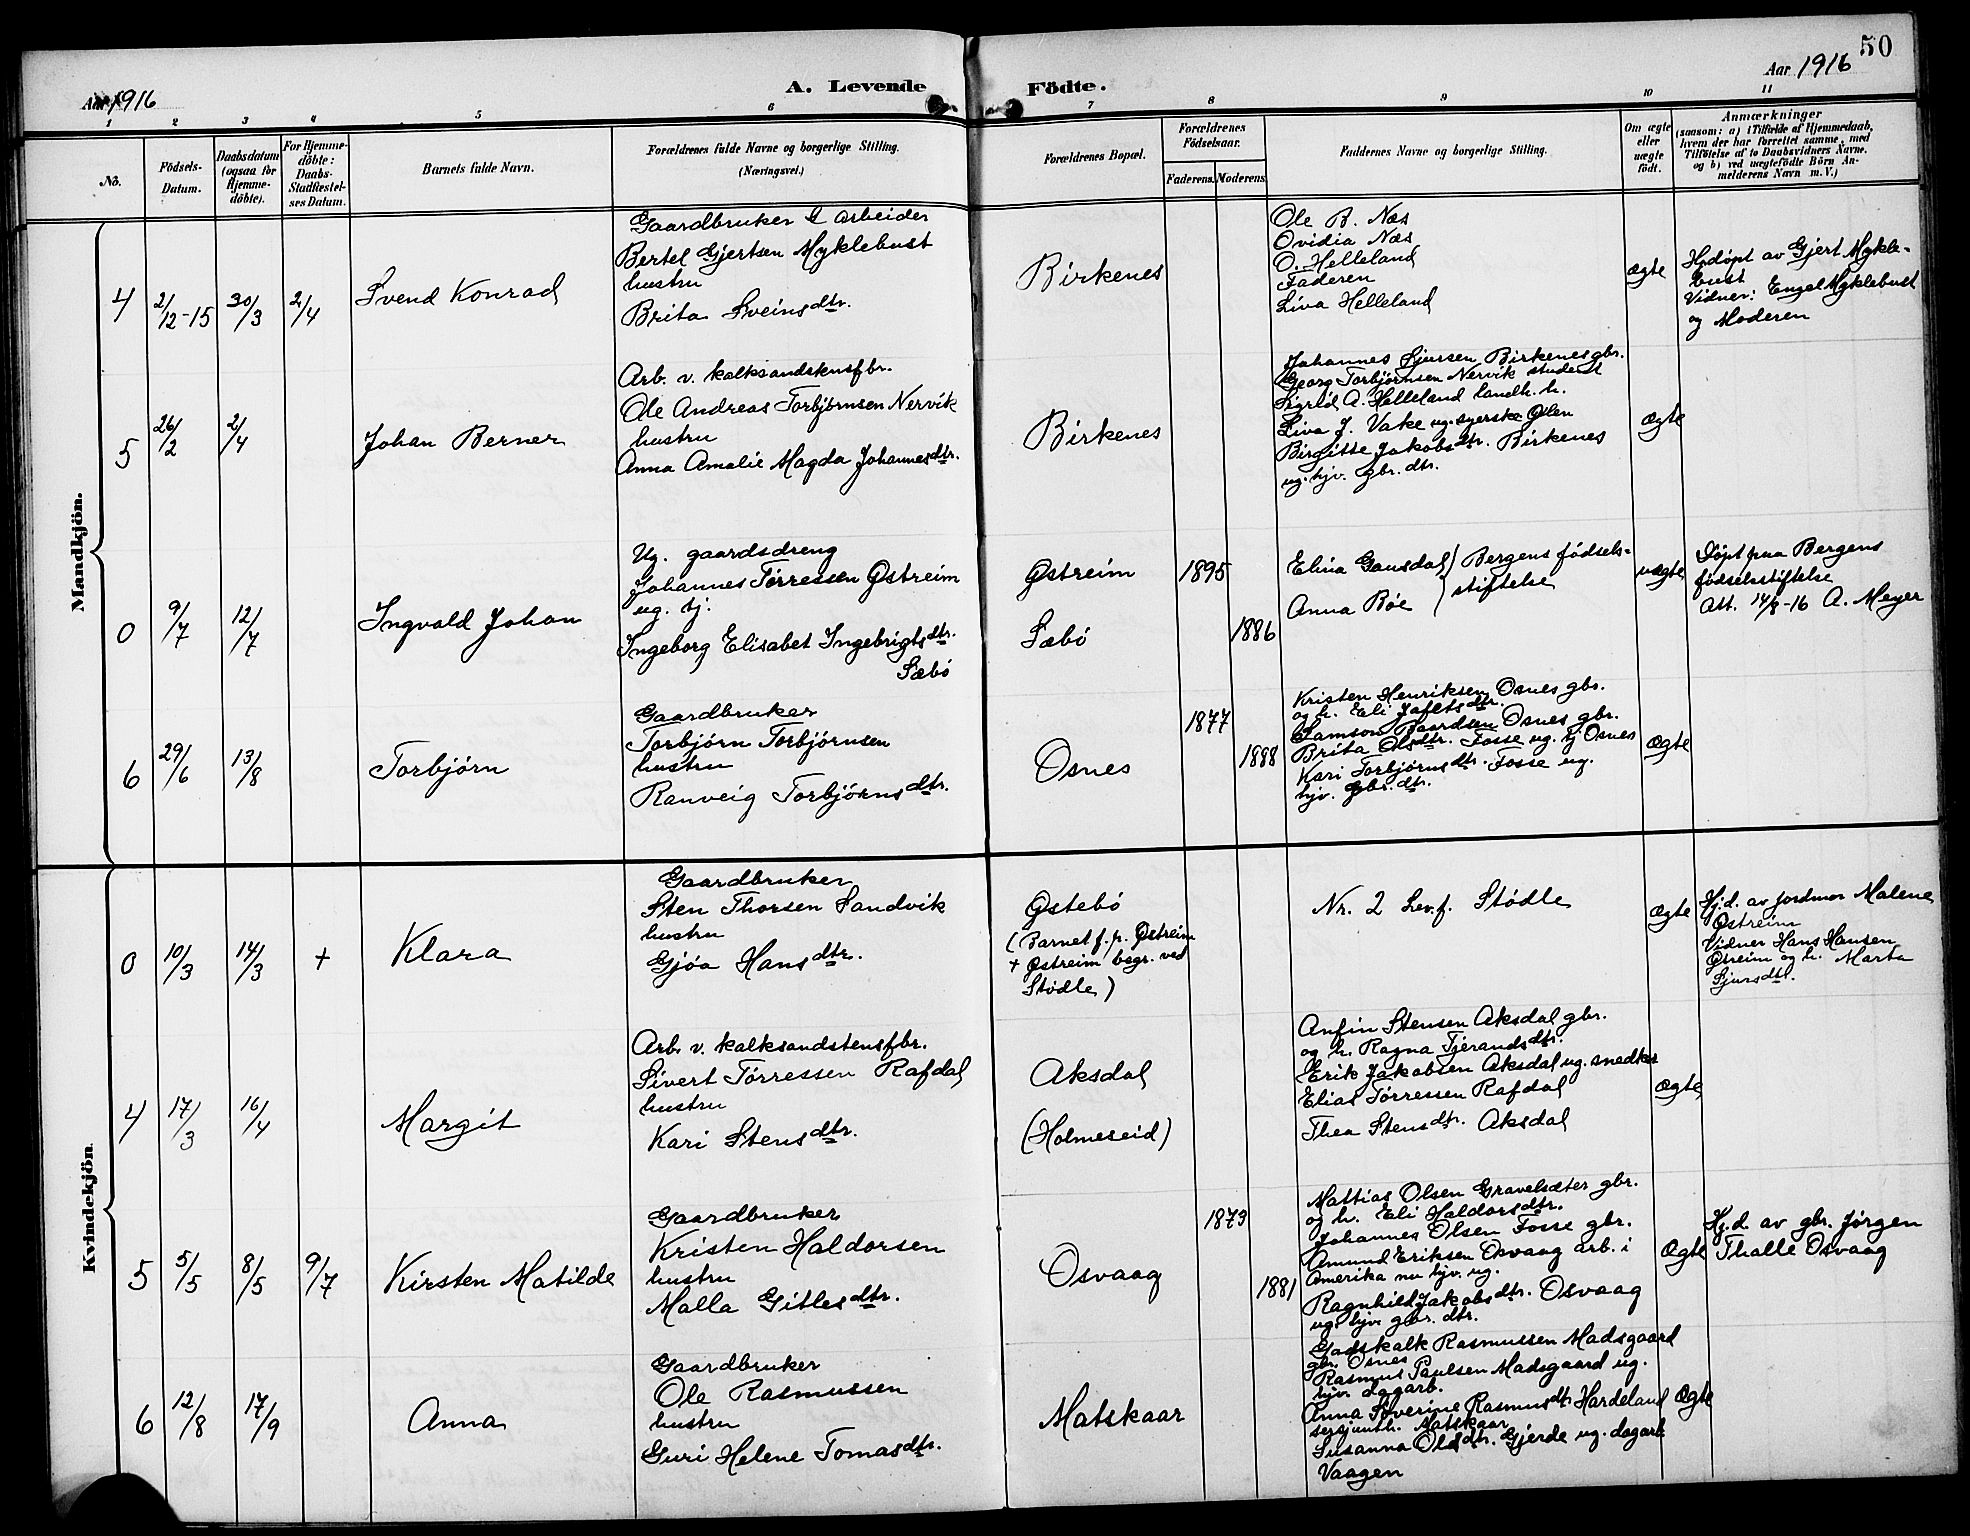 50
Aar 1916
A. Levende Födte.
Aar 1916
1 2 3 4 5 6 7 8 9 10 11
No.
Födsels-
Datum.
Daabsdatum
(ogsaa for
Hjemme-
döbte).
For Hjemme-
döbte:
Daabs-
Stadfæstel-
ses Datum.
Barnets fulde Navn.
Forældrenes fulde Navne og borgerlige Stilling.
(Næringsvei.)
Forældrenes Bopæl.
Forældrenes
Födselsaar.
Faderens. Moderens.
Faddernes Navne og borgerlige Stilling.
Om ægte
eller
uægte
födt.
Anmærkninger
(saasom: a) i Tilfælde af Hjemmedaab,
hvem der har forrettet samme, med
Tilföielse af to Daabsvidners Navne.
og b) ved uægtefödte Börn An-
melderens Navn m. V.)
Mandkjön.
4
2/12-15
30/3
2/4
Svend Konrad
Gaardbruker & arbeider
Bertel Gjertsen Myklebust
hustru
Brita Sveinsdtr.
Birkenes
Ole B. Næs
Ovidia Næs
O. Helleland
Faderen
Liva Helleland
ægte
Hjdøpt av Gjert Mykle-
bust
Vidner: Engel Myklebust
og Moderen
5
26/2
2/4
Johan Berner
Arb. v. kalksandstensfbr.
Ole Andreas Torbjørnsen Nervik
hustru
Anna Amalie Magda Johannesdtr.
Birkenes
Johannes Sjursen Birkenes gbr.
Georg Torbjørnsen Nervik student
Sigrid A. Helleland landh. h.
Liva J. Vake ug. syerske Ølen
Birgitte Jakobsdtr. Birkenes
ug. hjv. gbr. dtr.
ægte
0
9/7
12/7
Ingvald Johan
Ug. gaardsdreng
Johannes Tørressen Østreim
ug. tj.
Ingeborg Elisabet Ingebrigtsdtr.
Sæbø
Østreim
Sæbø
1895
1886
Elina Gausdal ) Bergens fødsels-
Anna Bøe ) stiftelse
uægte
Døpt paa Bergens
fødselsstiftelse
Att. 14/8-16 A. Meyer
6
29/6
13/8
Torbjørn
Gaardbruker
Torbjørn Torbjørnsen
hustru
Ranveig Torbjørnsdtr.
Osnes
1877
1888
Kristen Henriksen Osnes gbr.
og h. Eli Jafetsdtr.
Samson Baardsen Osnes gbr.
Brita Olsdtr. Fosse ug. tj Osnes
Kari Torbjørnsdtr. Fosse ug.
hjv. gbr. dtr.
Ægte
Kvindekjön
0
10/3
14/3
+
Klara
Gaardbruker
Sten Thorsen Sandvik
hustru
Gjøa Hansdtr.
Østebø
(Barnet f. p. Østreim
+ Østreim begr. ved
Stødle)
Nr. 2 Lev.f. Stødle
Ægte
Hj.d. av jordmor Malene
Østreim
Vidner Hans Hansen
Østreim og h. Marta
Sjursdtr.
4
17/3
16/4
Margit
Arb. v. kalksandstensfbr.
Sivert Tørressen Rafdal
hustru
Kari Stensdtr.
Aksdal
(Holmeseid)
Anfin Stensen Aksdal gbr.
og h. Ragna Tjerandsdtr.
Erik Jakobsen Aksdal ug. snedker
Elias Tørressen Rafdal
Thea Stensdtr. Aksdal
Ægte
5
5/5
8/5
9/7
Kirsten Matilde
Gaardbruker
Kristen Haldorsen
hustru
Malla Gitlesdtr.
Osvaag
1873
1881
Mattias Olsen Gravelsæter gbr.
og h. Eli Haldorsdtr.
Johannes Olsen Fosse gbr.
Amund Eriksen Osvaag arb. i
Amerika nu hjv. ug.
Ragnhild Jakobsdtr. Osvaag
ug. hjv. gbr. dtr.
Ægte
Hj.d. av gbr. Jørgen
Thalle Osvaag
6
12/8
17/9
Anna
Gaardbruker
Ole Rasmussen
hustru
Guri Helene Tomasdtr.
Matskaar
Godskalk Rasmussen Madsgaard
gbr. Osnes
Rasmus Paulsen Madsgaard ug.
hjv. dagarb.
Anna Severine Rasmusdtr Hardeland
sersjanth. Matskaar
Susanna Olsdtr. Gjerde ug. dagarb
Vaagen
Ægte